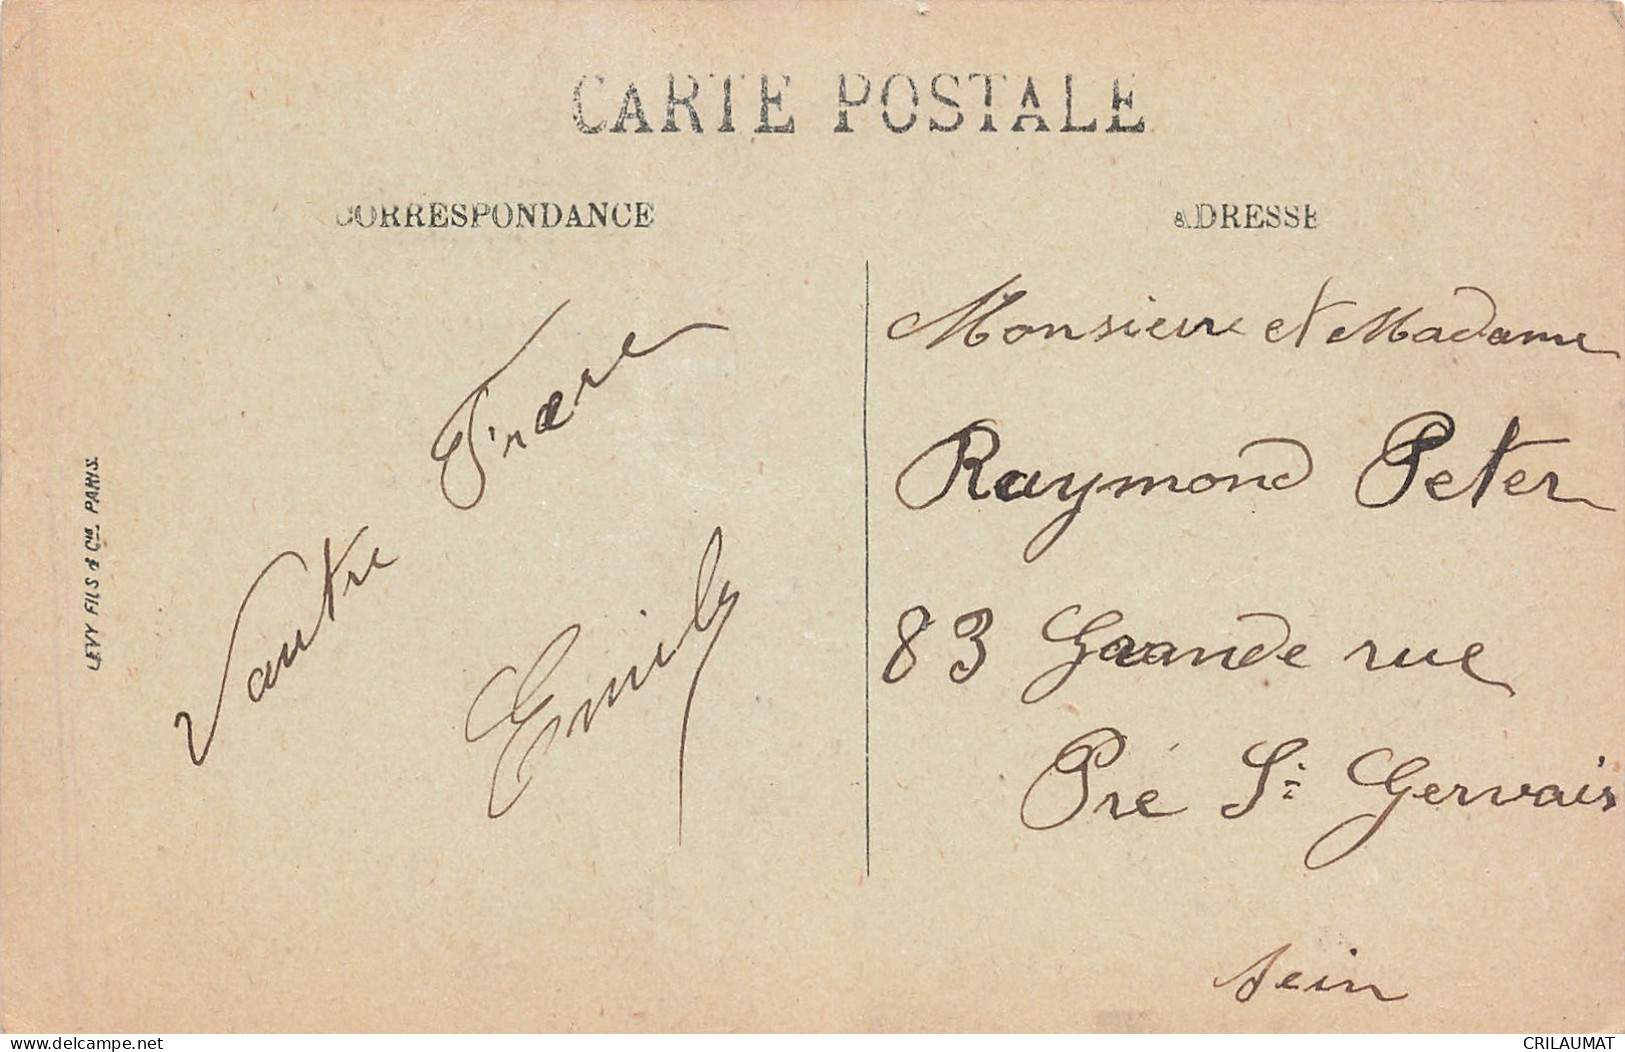 CARTE POSTALE
CORRESPONDANCE
ADRESSE
LEVY FILS & Cie. PARIS.
Vautre Frære
Emily
Monsieur et Madame
Raymond Peter
83 Grande rue
Pré St Gervais
Sein
delcampe.net
CRILAUMAT